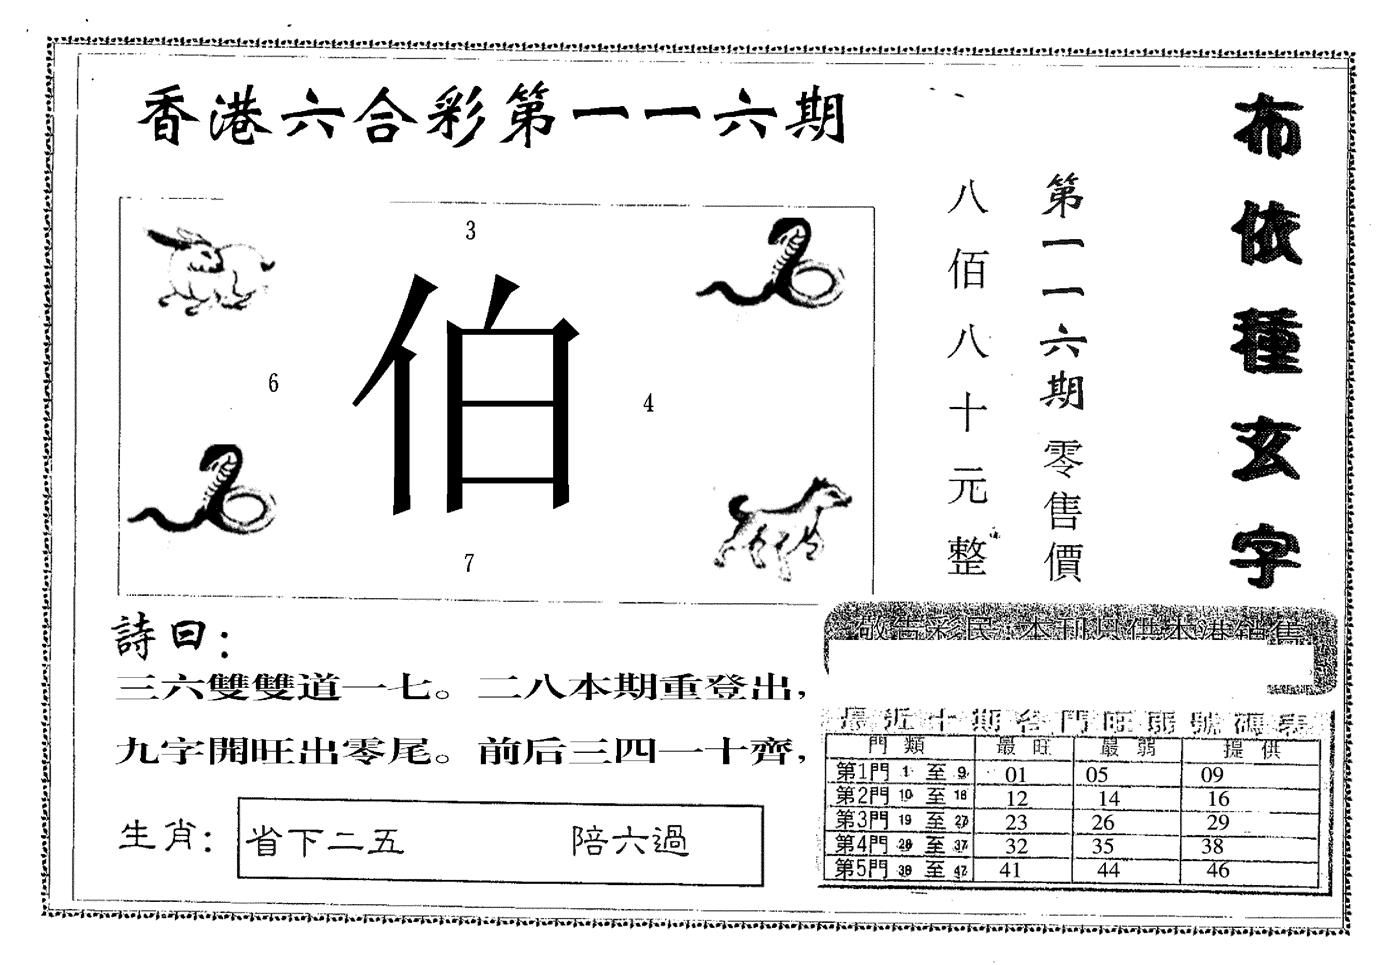 香港六合彩第一一六期
布依種玄字
第一一六期零售價
八佰八十元整
3
伯
6
4
7
詩曰：
三六雙雙道一七。二八本期重登出，
九字開旺出零尾。前后三四一十齊，
生肖：省下二五 陪六過
敬告彩民：本刊只供本港销售
最近十期各門旺弱號碼表
門類 最旺 最弱 提供
第1門 1 至 9 01 05 09
第2門 10 至 18 12 14 16
第3門 19 至 27 23 26 29
第4門 28 至 37 32 35 38
第5門 38 至 47 41 44 46